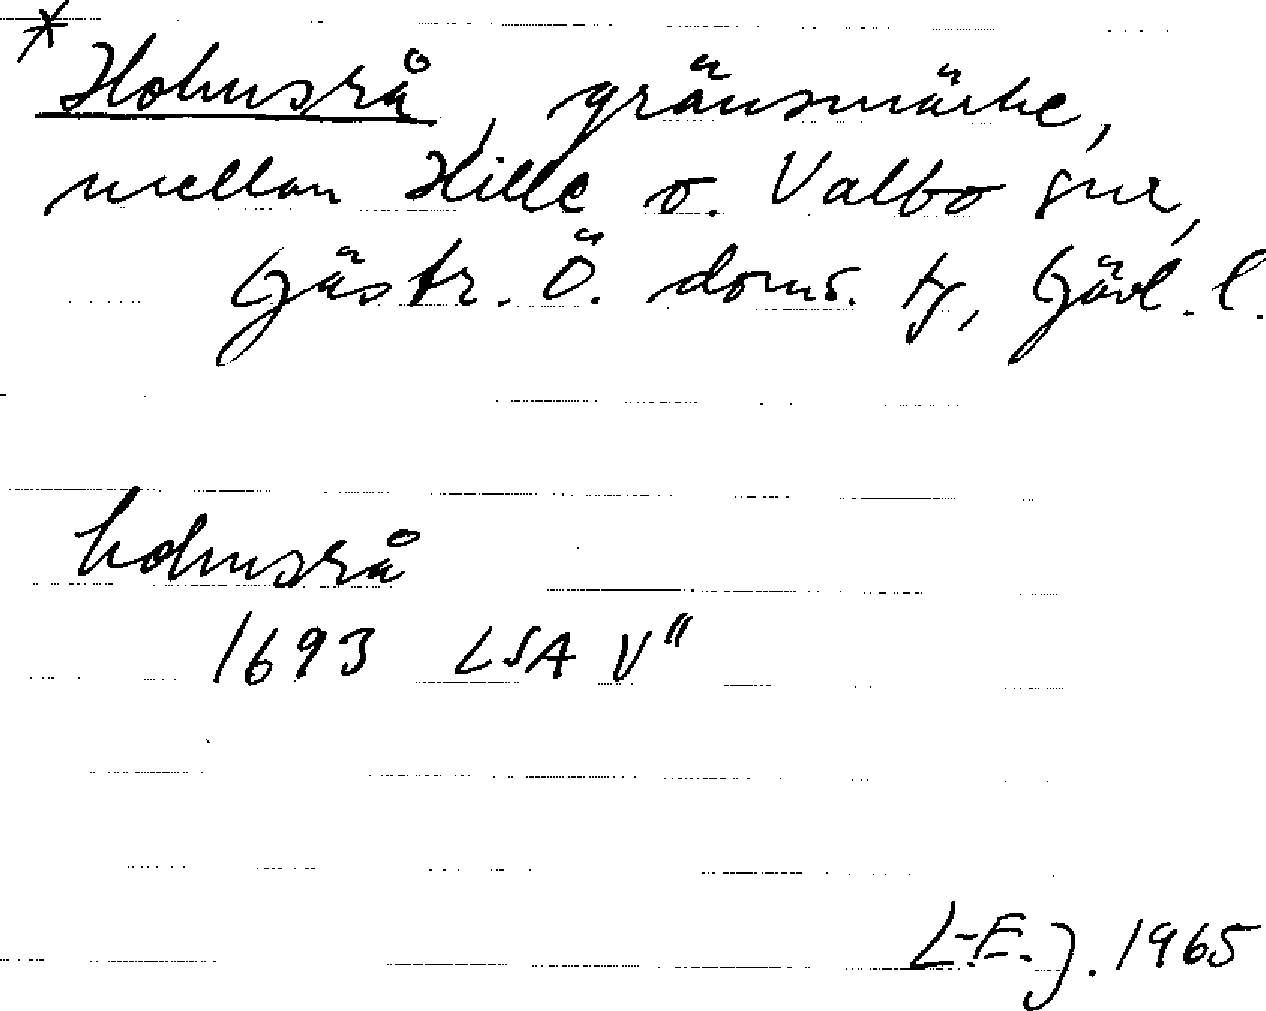 * Holmsrå, gränsmärke,
mellan Hille o. Valbo snr,
Gästr. Ö. doms. tg, Gävl. l.
holmsrå
1693 LSA V"
L-E. J. 1965